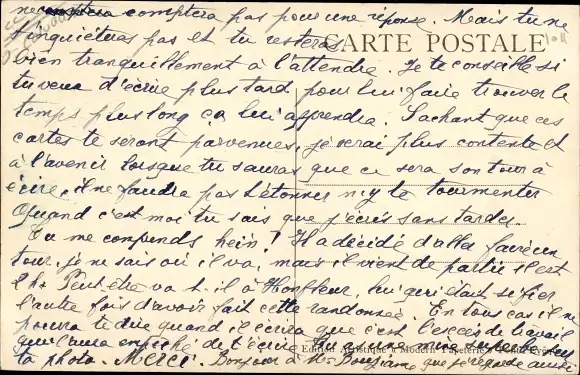 ne comptera pas pour une réponse. Mais tu ne
t'inquièteras pas et tu resteras
CARTE POSTALE
bien tranquillement à l'attendre. Je te conseille si
tu veux d'écrire plus tard pour lui faire trouver le
temps plus long ça lui apprendra. Sachant que ces
cartes te seront parvenues, je serai plus contente et
à l'avenir lorsque tu sauras que ce sera son tour à
écrire, il ne faudra pas t'étonner ni te tourmenter
Quand c'est moi tu sais que j'écris sans tarder
Tu me comprends hein! Il a décidé d'aller faire un
tour, je ne sais où il va, mais il vient de partir il est
2 h. Peut être va t. il à Honfleur, lui qui était si fier
l'autre fois d'avoir fait cette randonnée. En tous cas il ne
pourra te dire quand il écrira que c'est l'excès de travail
qui l'aura empêché de t'écrire. Tu as une mine superbe sur
ta photo. Merci. Bonjour à que je réponde aussi